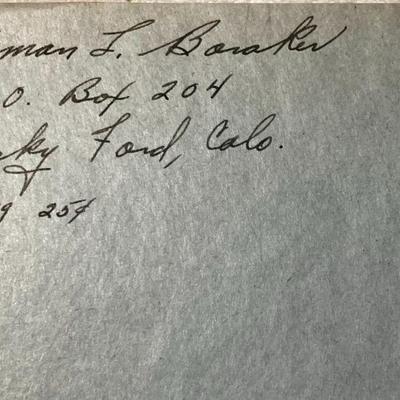 man L. Boraker
O. Box 204
ky Ford, Colo.
9 25¢